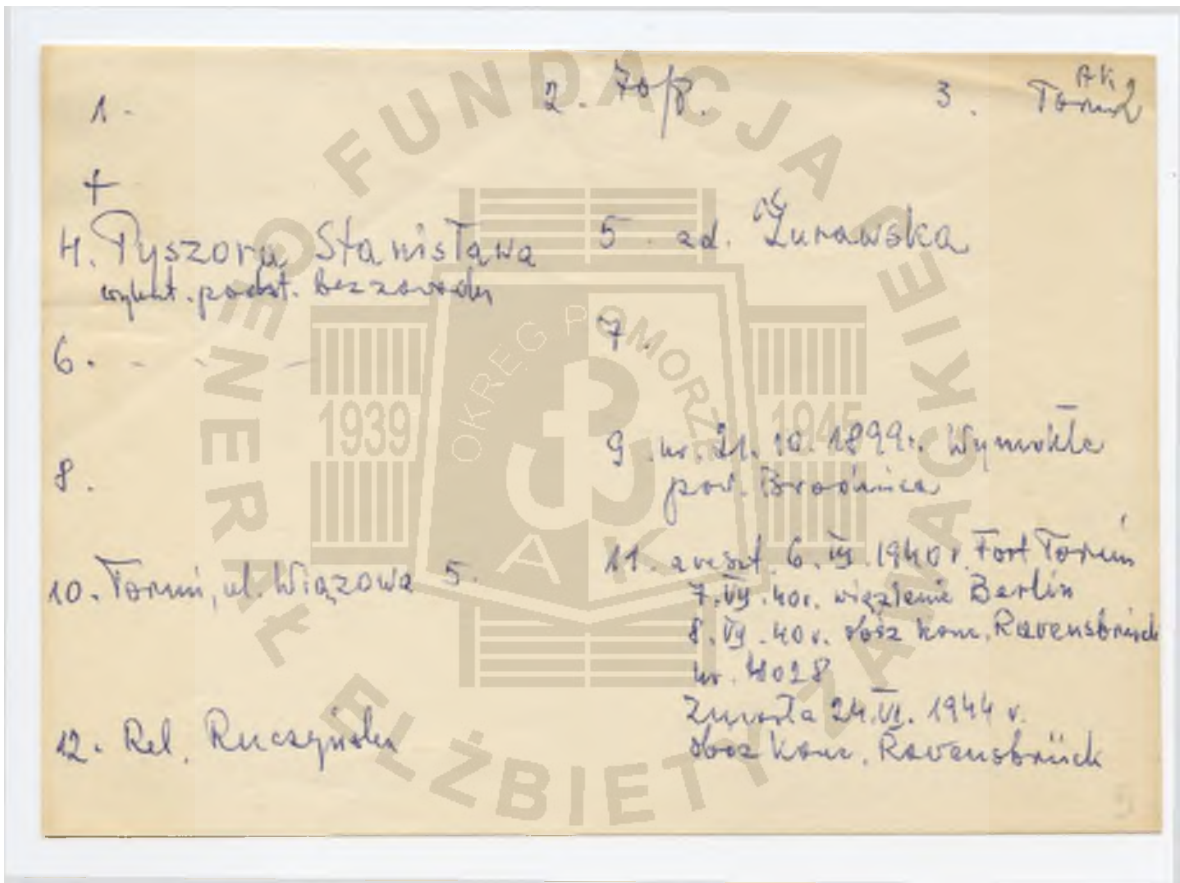 AK
1. 2. 70/P. 3. Toruń
+
4. Pyszora Stanisława 5. zd. Żurawska
wykszt. podst. bez zawodu
6. - - - 7.
8. 9. ur. 21. 10. 1899 r. Wymokłe
pow. Brodnica
10. Toruń, ul. Wiązowa 5. 11. areszt. 6. 1940 r. Fort Toruń
7. 40 r. więzienie Berlin
8. 40 r. obóz konc. Ravensbrück
nr. 4028
Zmarła 24. VI. 1944 r.
obóz konc. Ravensbrück
12. Rel. Ruczyńska
FUNDACJA
GENERAŁ ELŻBIETY ZAWACKIEJ
OKRĘG POMORZE
1939 1945
AK